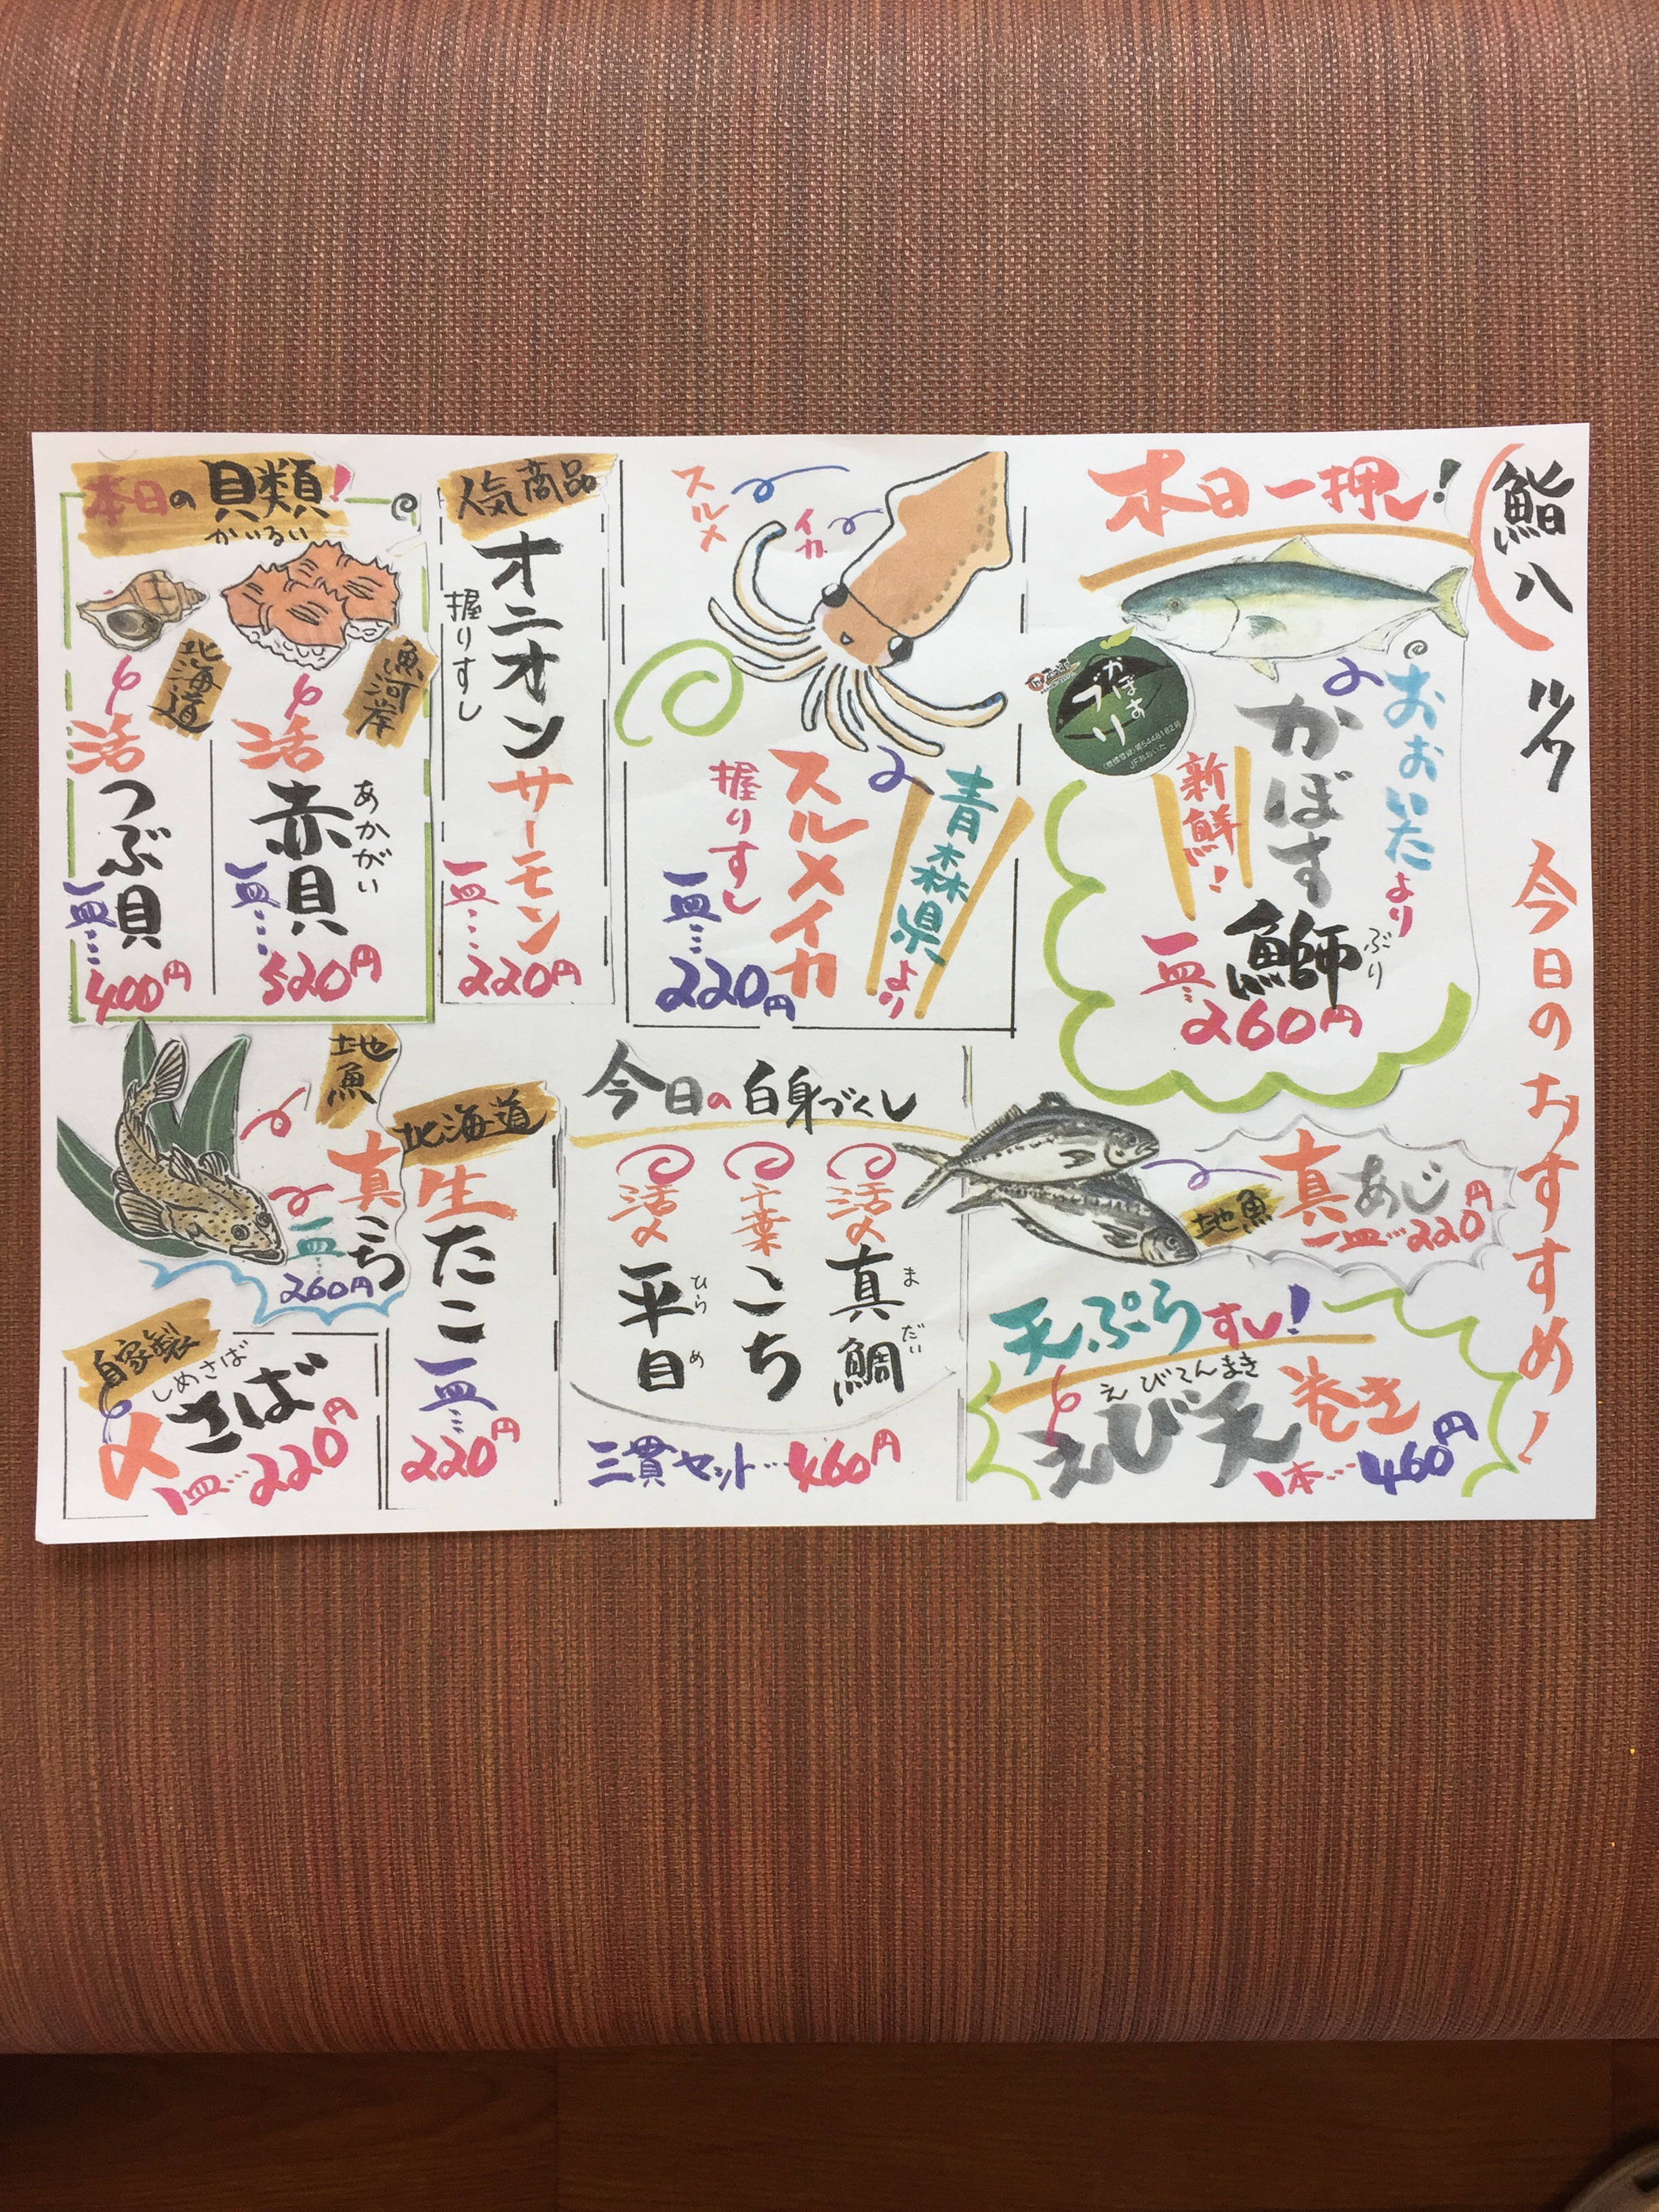 鮨八
今日のおすすめ!
本日一押し!
おおいたより
かぼす鰤
ぶり
新鮮!
一皿…260円
かぼすブリ
JFおおいた
スルメ
イカ
青森県より
スルメイカ
握りすし
一皿…220円
人気商品
オニオンサーモン
握りすし
一皿…220円
本日の貝類!
かいるい
魚河岸
活
赤貝
あかがい
一皿…520円
北海道
活
つぶ貝
一皿…400円
地魚
真あじ
一皿…220円
天ぷらすし!
えびてんまき
えび天巻き
1本…460円
今日の白身づくし
活〆
真鯛
まだい
千葉
こち
活〆
平目
ひらめ
三貫セット…460円
北海道
生たこ
一皿…220円
地魚
真こち
一皿…260円
自家製
しめさば
〆さば
一皿…220円